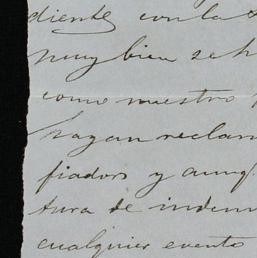 diente con la
muy bien se h
como nuestro
hagan reclam
fiador y aunq
tura de indem
cualquier evento